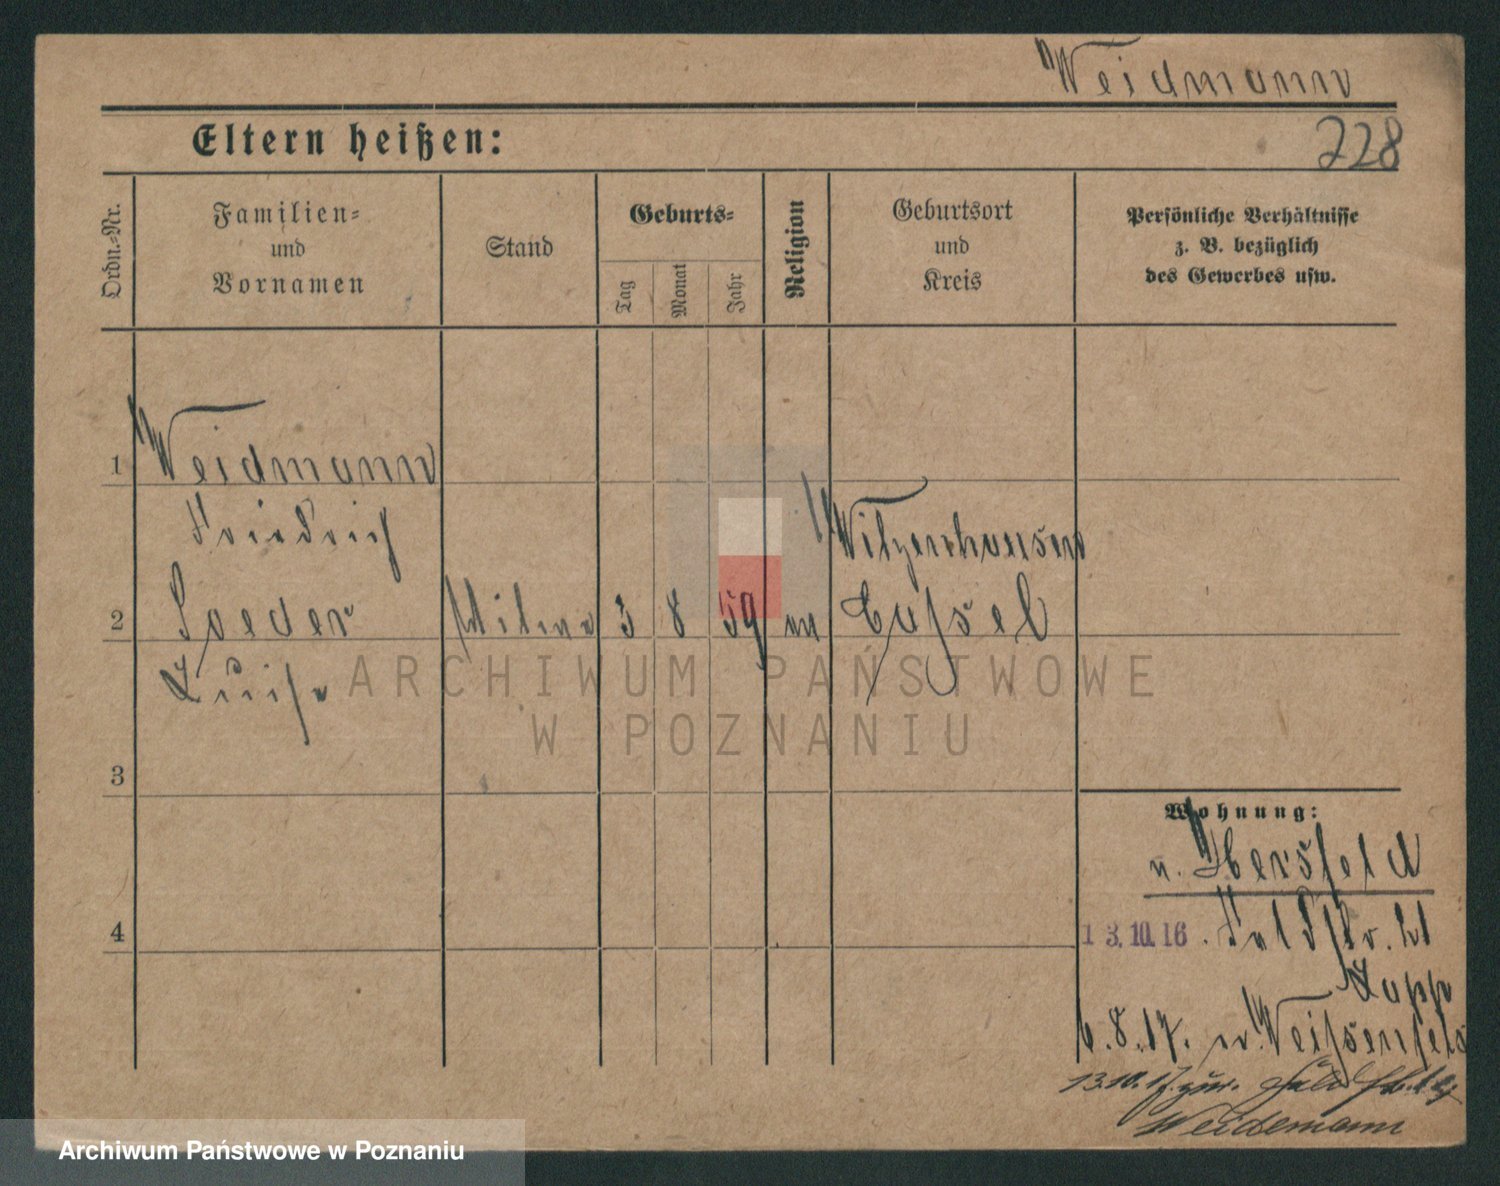 Weidmann
Eltern heißen:
228
Ordn.-Nr.
Familien-
und
Vornamen
Stand
Geburts-
Tag
Monat
Jahr
Religion
Geburtsort
und
Kreis
Persönliche Verhältnisse
z. B. bezüglich
des Gewerbes usw.
1
Weidmann
Friedrich
Witzenhausen
2
Soeder
3
8
59
Cassel
Luise
ARCHIWUM PAŃSTWOWE
W POZNANIU
3
Wohnung:
n. Hersfeld
4
13.10.16. Feldstr. 21
Zapp
6.8.17. v. Weissenfels
13.10.17. zur. Feldstr. 14
Weidemann
Archiwum Państwowe w Poznaniu